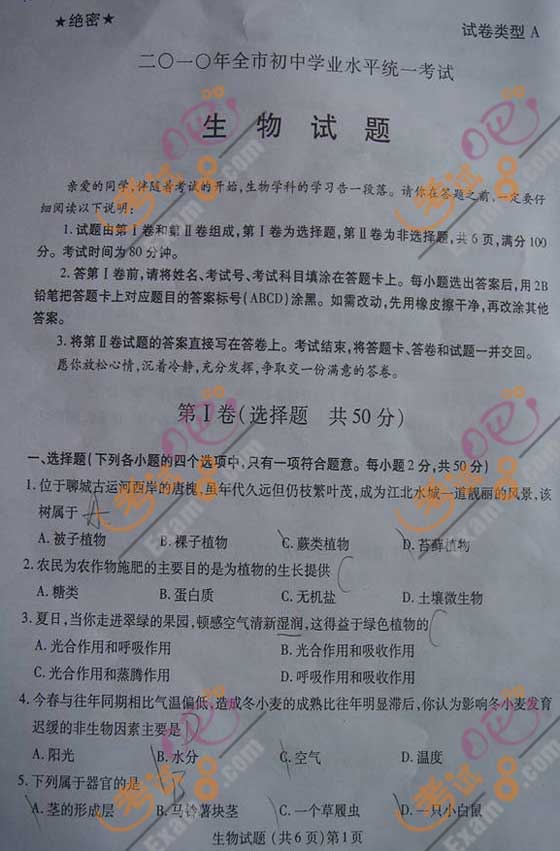 ★绝密★
试卷类型 A
二〇一〇年全市初中学业水平统一考试
生 物 试 题
亲爱的同学,伴随着考试的开始,生物学科的学习告一段落。请你在答题之前,一定要仔
细阅读以下说明:
1.试题由第Ⅰ卷和第Ⅱ卷组成,第Ⅰ卷为选择题,第Ⅱ卷为非选择题,共6页,满分100
分。考试时间为80分钟。
2.答第Ⅰ卷前,请将姓名、考试号、考试科目填涂在答题卡上。每小题选出答案后,用2B
铅笔把答题卡上对应题目的答案标号(ABCD)涂黑。如需改动,先用橡皮擦干净,再改涂其他
答案。
3.将第Ⅱ卷试题的答案直接写在答卷上。考试结束,将答题卡、答卷和试题一并交回。
愿你放松心情,沉着冷静,充分发挥,争取交一份满意的答卷。
第Ⅰ卷(选择题 共50分)
一、选择题(下列各小题的四个选项中,只有一项符合题意。每小题2分,共50分)
1.位于聊城古运河西岸的唐槐,虽年代久远但仍枝繁叶茂,成为江北水城一道靓丽的风景,该
树属于 A
A.被子植物 B.裸子植物 C.蕨类植物 D.苔藓植物
2.农民为农作物施肥的主要目的是为植物的生长提供 C
A.糖类 B.蛋白质 C.无机盐 D.土壤微生物
3.夏日,当你走进翠绿的果园,顿感空气清新湿润,这得益于绿色植物的 C
A.光合作用和呼吸作用 B.光合作用和吸收作用
C.光合作用和蒸腾作用 D.呼吸作用和吸收作用
4.今春与往年同期相比气温偏低,造成冬小麦的成熟比往年明显滞后,你认为影响冬小麦发育
迟缓的非生物因素主要是 D
A.阳光 B.水分 C.空气 D.温度
5.下列属于器官的是 B
A.茎的形成层 B.马铃薯块茎 C.一个草履虫 D.一只小白鼠
生物试题 (共6页)第1页
考试吧
Exam8.com